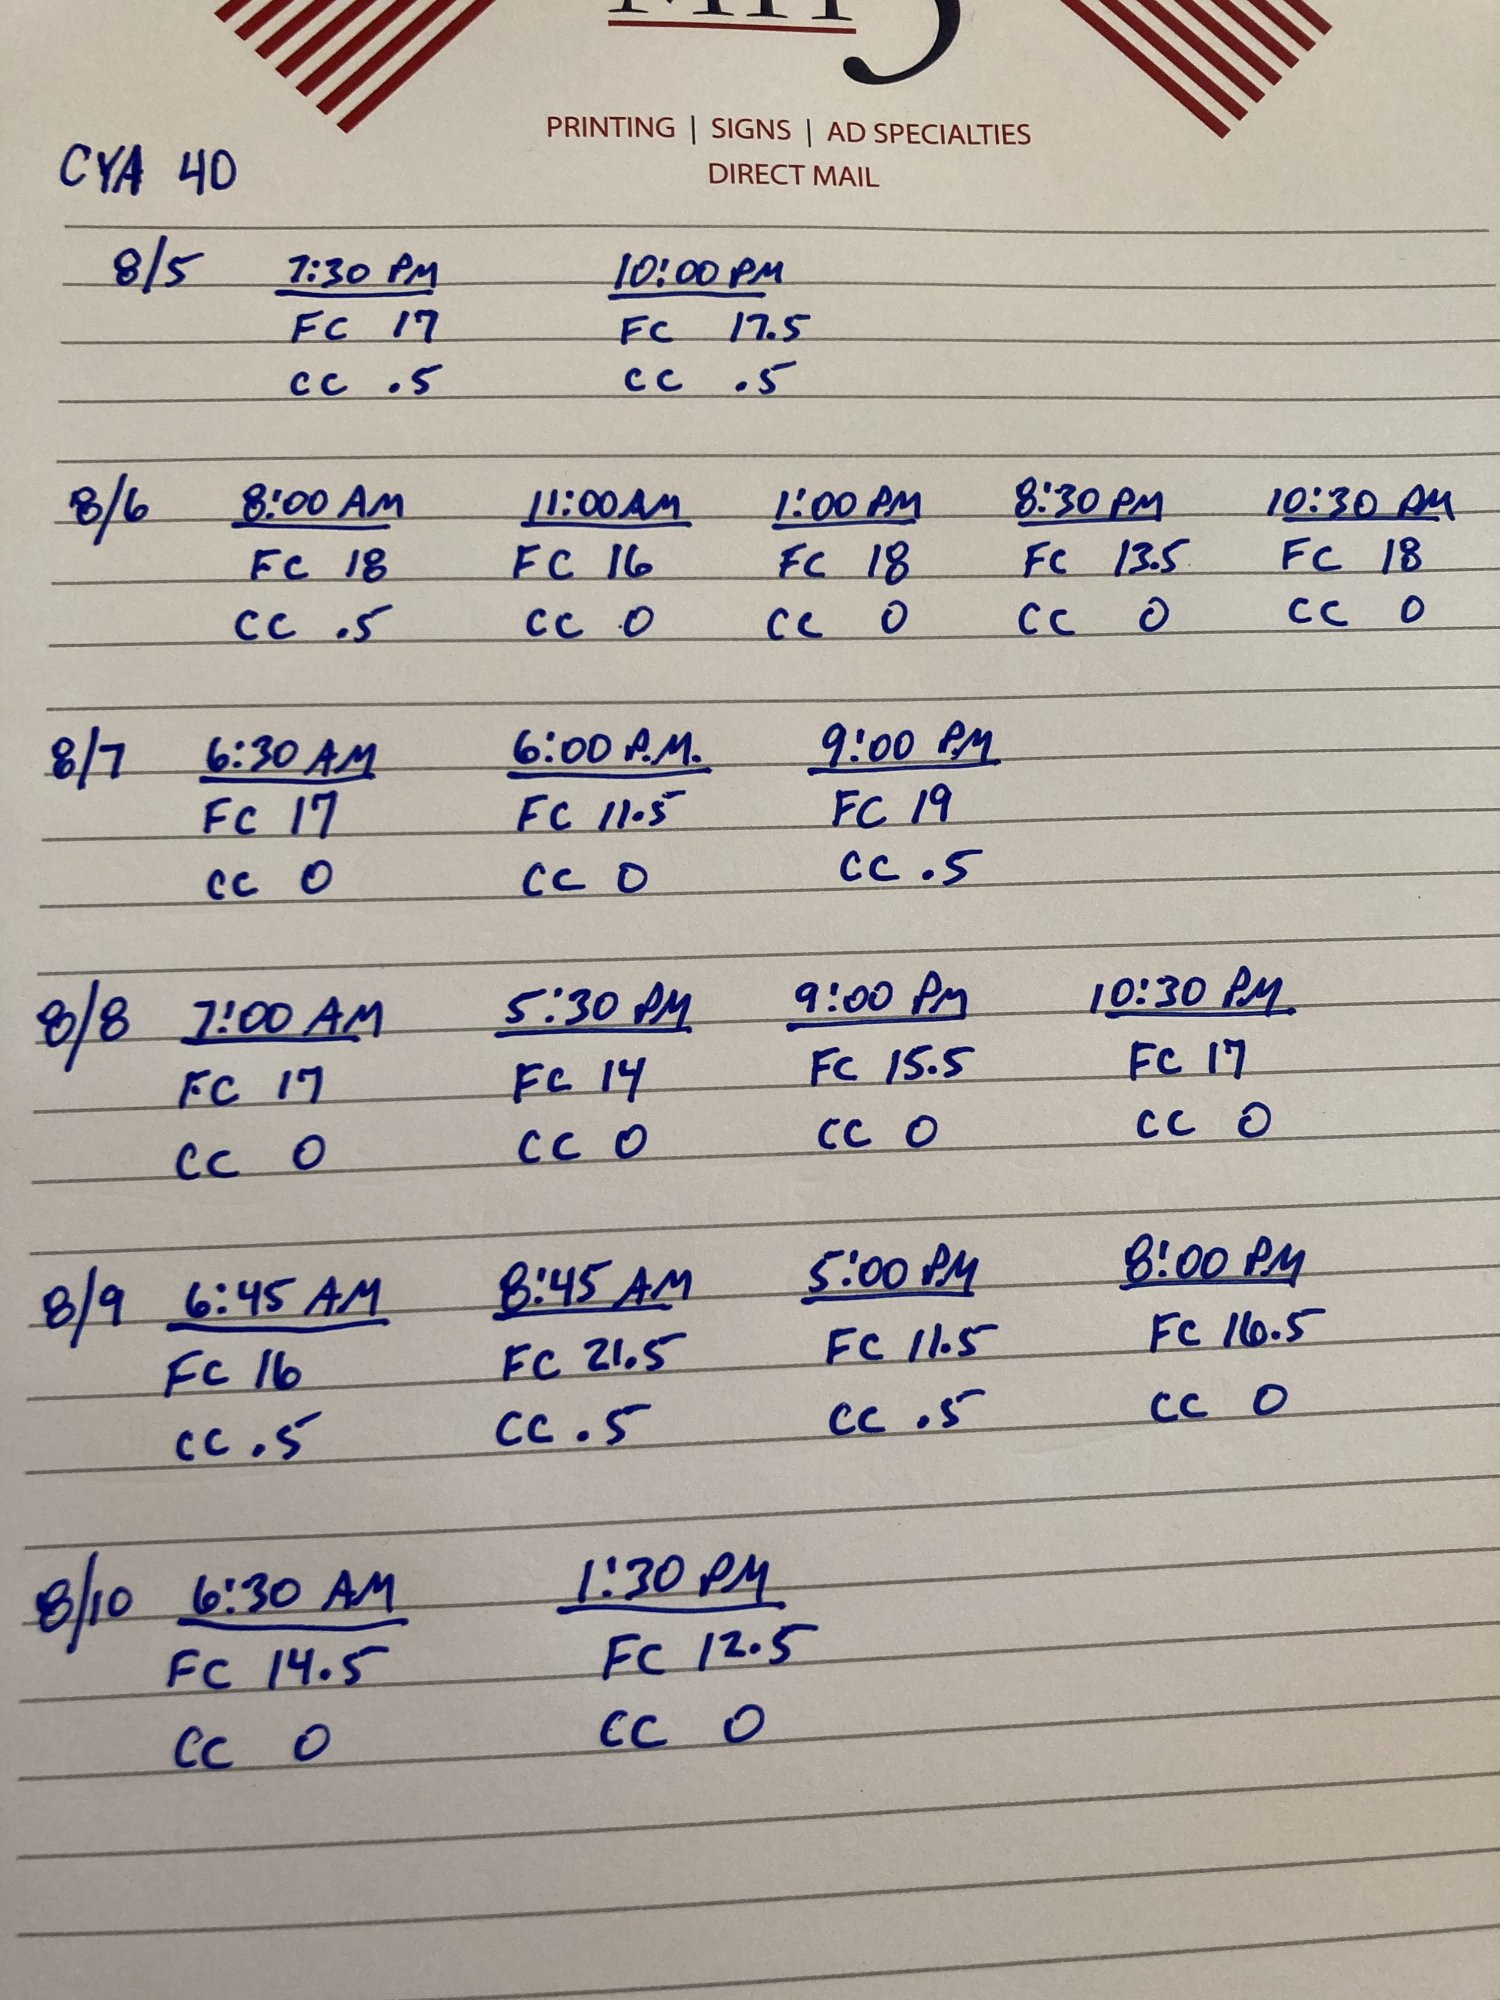 PRINTING | SIGNS | AD SPECIALTIES
DIRECT MAIL
CYA 40
8/5 7:30 PM 10:00 PM
FC 17 FC 17.5
CC .5 CC .5
8/6 8:00 AM 11:00 AM 1:00 PM 8:30 PM 10:30 AM
FC 18 FC 16 FC 18 FC 13.5 FC 18
CC .5 CC 0 CC 0 CC 0 CC 0
8/7 6:30 AM 6:00 P.M. 9:00 PM
FC 17 FC 11.5 FC 19
CC 0 CC 0 CC .5
8/8 7:00 AM 5:30 PM 9:00 PM 10:30 PM
FC 17 FC 14 FC 15.5 FC 17
CC 0 CC 0 CC 0 CC 0
8/9 6:45 AM 8:45 AM 5:00 PM 8:00 PM
FC 16 FC 21.5 FC 11.5 FC 16.5
CC .5 CC .5 CC .5 CC 0
8/10 6:30 AM 1:30 PM
FC 14.5 FC 12.5
CC 0 CC 0